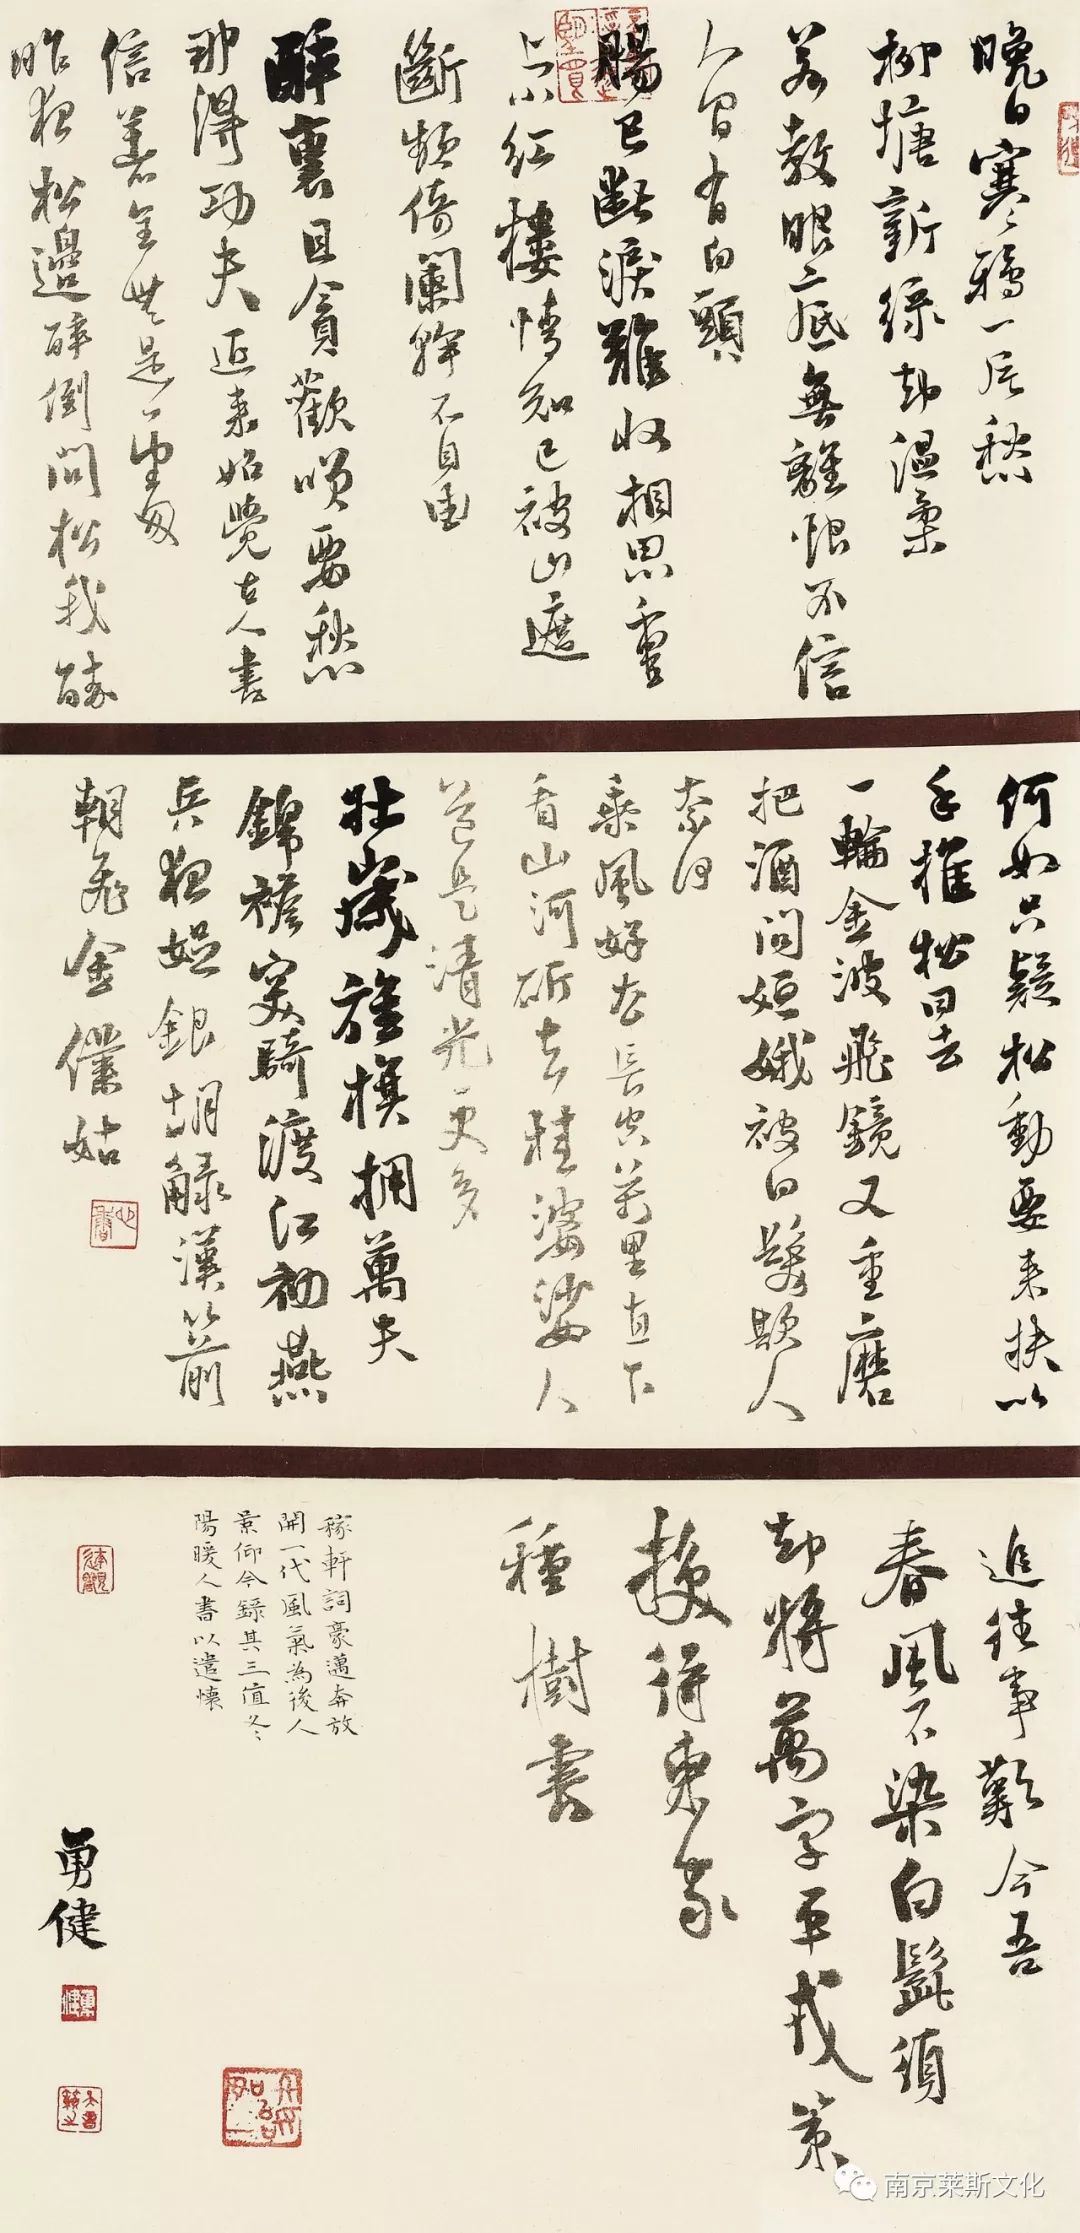 晚日寒鴉一片愁
柳塘新綠却温柔
若教眼底無離恨不信
人間有白頭
腸已斷淚難收相思重
上小紅樓情知已被山遮
斷頻倚闌幹不自由
醉裏且貪歡笑要愁
那得功夫近來始覺古人書
信著全無是處
昨夜松邊醉倒問松我醉
何如只疑松動要來扶以
手推松曰去
一輪金波飛鏡又重磨
把酒問姮娥被白髮欺人
奈何
乘風好去長空萬里直下
看山河斫去桂婆娑人
道是清光更多
壯歲旌旗擁萬夫
錦襜突騎渡江初燕
兵夜娖銀胡觮漢箭
朝飛金僕姑
追往事歎今吾
春風不染白髭須
却將萬字平戎策
換得東家
種樹書
稼軒詞豪邁奔放
開一代風氣為後人
景仰今錄其三值冬
陽暖人書以遣懷
勇健
勇健
南京莱斯文化